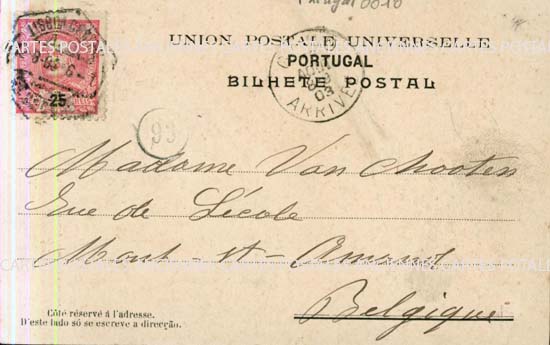 Portugal 0010
UNION POSTALE UNIVERSELLE
PORTUGAL
BILHETE POSTAL
25
ARRIVÉ
03
93
Madame Van Nooten
Rue de L'école
Mont-st-Amand
Belgique
Côté réservé á l'adresse.
D'este lado só se escreve a direcção.
CARTES POSTALES